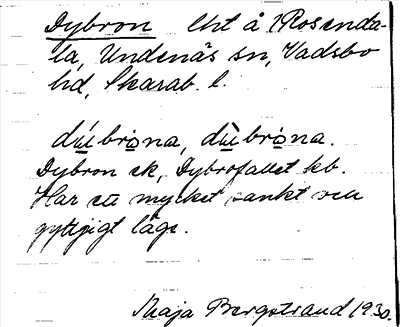 Dybron lht å 1 Rosenda-
la, Undenäs sn, Vadsbo
hd, Skarab. l.
dybrona, dybrona.
Dybron ek, Dybrofallet kb.
Har ett mycket sankt och
gyttjigt läge.
Maja Bergstrand 1930.